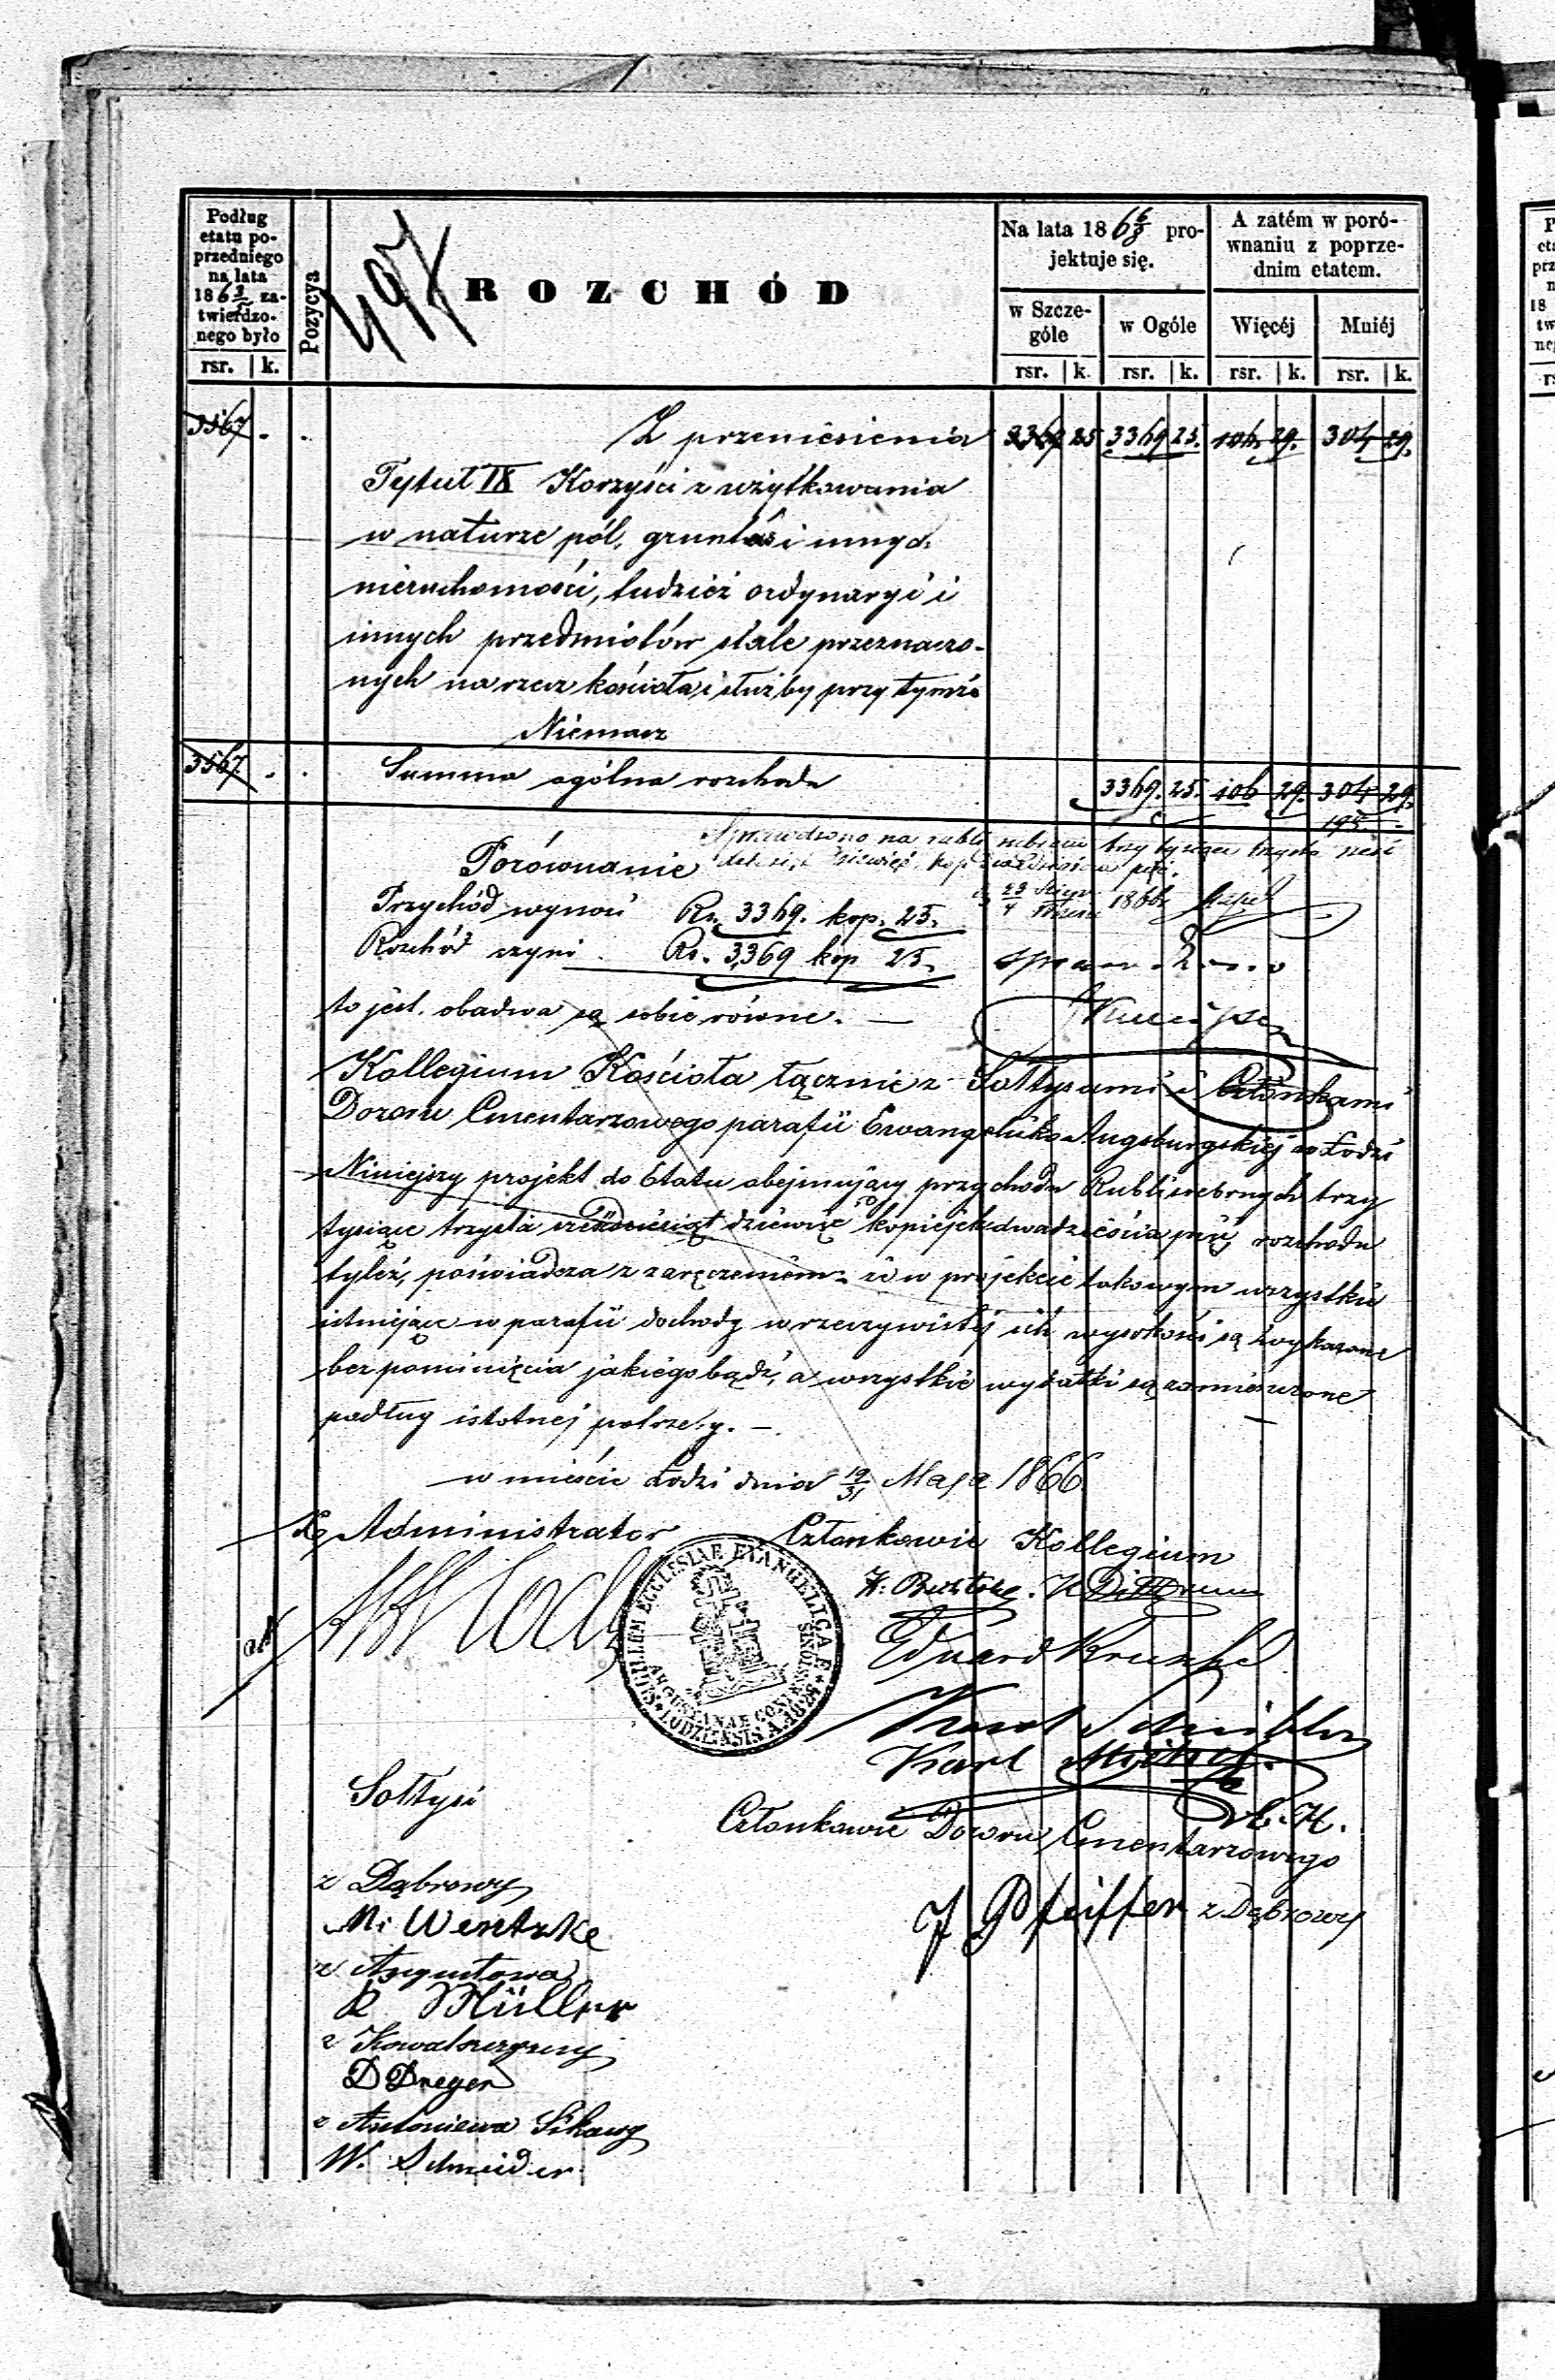 Podług etatu poprzedniego na lata 186 3/5 zatwierdzonego było
rsr. k.
Pozycya
497
ROZCHÓD
Na lata 186 6/8 projektuje się.
w Szczególe
w Ogóle
A zatém w porównaniu z poprzednim etatem.
Więcéj
Mniéj
rsr. k. rsr. k. rsr. k. rsr. k.
3567 . . Z przeniesienia 3369 25 3369 25. 106 29. 304 29.
Tytuł IX Korzyści z użytkowania
w naturze pól, gruntów i innych
nieruchomości, tudzież ordynaryi i
innych przedmiotów stale przeznaczo-
nych na rzecz kościoła i służby przy tymże
Niemasz
3567 . . Summa ogólna rozchodu 3369. 25. 106 29. 304 29.
195 -
Sprawdzono na rubli srebrem trzy tysiące trzysta sześć
dziesiąt dziewięć kop dwadzieścia pięć.
Porównanie
1866
Przychód wynosi Rs. 3369. kop. 25.
Rozchód czyni Rs. 3369 kop 25.
to jest. obadwa są sobie równe. —
Kollegium Kościoła łącznie z Sołtysami i Członkami
Dozoru Cmentarzowego parafii Ewangelicko Augsburgskiej w Łodzi
Niniejszy projekt do Etatu obejmujący przychodu Rubli srebrnych trzy
tysiące trzysta sześćdziesiąt dziewięć kopiejek dwadzieścia pięć, rozchodu
tyleż, poświadcza z zaręczeniem że w projekcie takowym wszystkie
istniejące w parafii dochody w rzeczywistej ich wysokości są wykazane
bez pominięcia jakiegobądź, a wszystkie wydatki są zamieszczone
podług istotnej potrzeby. —
w mieście Łodzi dnia 19/31 Maja 1866
Administrator
Członkowie Kollegium
SIGILLUM ECCLESIAE EVANGELICAE
AUGUSTANAE CONFESSIONIS
LODZIENSIS
Eduard
Karl
Sołtysi
Członkowie Dozoru Cmentarzowego
z Dąbrowy
M. Wentzke
J Pfeiffer z Dąbrowy
z Augustowa
R Müller
z Kowalszczyzny
D Dreger
z Antoniewa Sikawy
W. Schneider